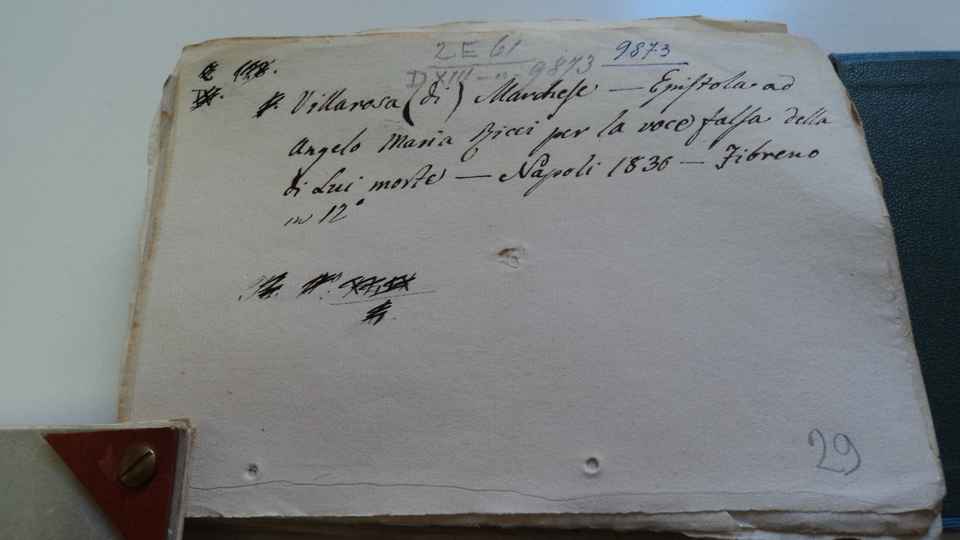 2 E 61
9873
D XIII 9873
Villarosa (di) Marchese — Epistola ad
Angelo Maria Ricci per la voce falsa della
di Lui morte — Napoli 1836 — Fibreno
in 12°
29